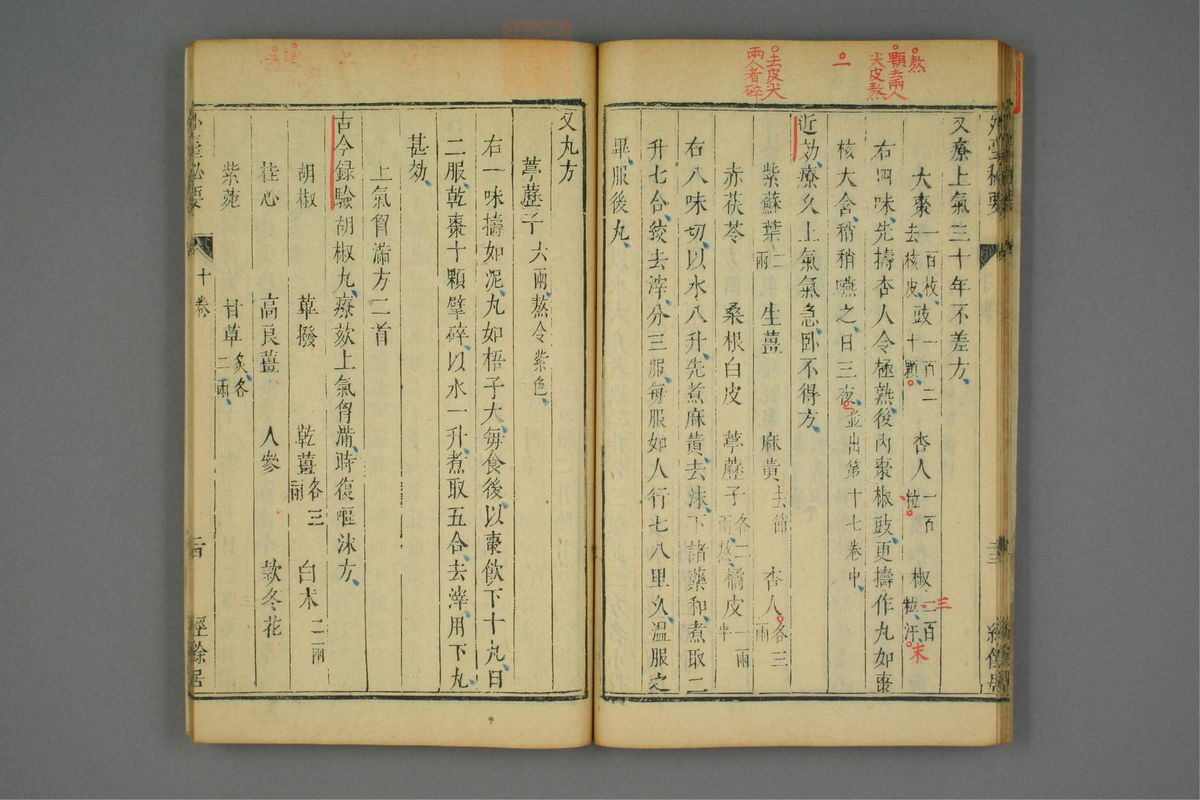 熬
顆去兩人
尖皮熬
一
去皮尖
兩人者碎
又療上氣三十年不差方
大棗一百枚去核皮 豉一百二十顆 杏人一百粒 椒二百粒汗
三
末
右四味先擣杏人令極熟後內棗椒豉更擣作丸如棗
核大含稍稍嚥之日三夜一並出第十七卷中
近効療久上氣氣急臥不得方
紫蘇葉二兩 生薑 麻黃去節 杏人各三兩
赤茯苓 桑根白皮 葶藶子各二兩熬 橘皮一兩半
右八味切以水八升先煮麻黃去沫下諸藥和煮取二
升七合絞去滓分三服每服如人行七八里久溫服之
畢服後丸
又丸方
葶藶子六兩熬令紫色
右一味擣如泥丸如梧子大每食後以棗飲下十丸日
二服乾棗十顆擘碎以水一升煮取五合去滓用下丸
甚効
上氣胷滿方二首
古今録驗胡椒丸療欬上氣胷滿時復嘔沫方
胡椒 蓽撥 乾薑各三兩 白朮二兩
桂心 高良薑 人參 款冬花
紫菀 甘草炙各二兩
外臺秘要 十卷 經餘居